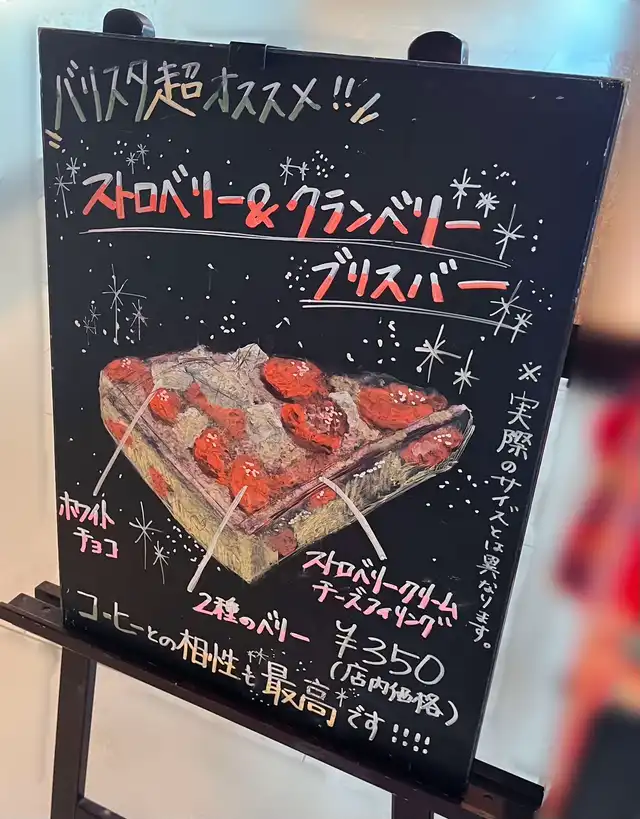 バリスタ超オススメ!!
ストロベリー&クランベリー
ブリスバー
※実際のサイズとは異なります。
ホワイト
チョコ
2種のベリー
ストロベリークリーム
チーズフィリング
¥350
(店内価格)
コーヒーとの相性も最高です!!!!